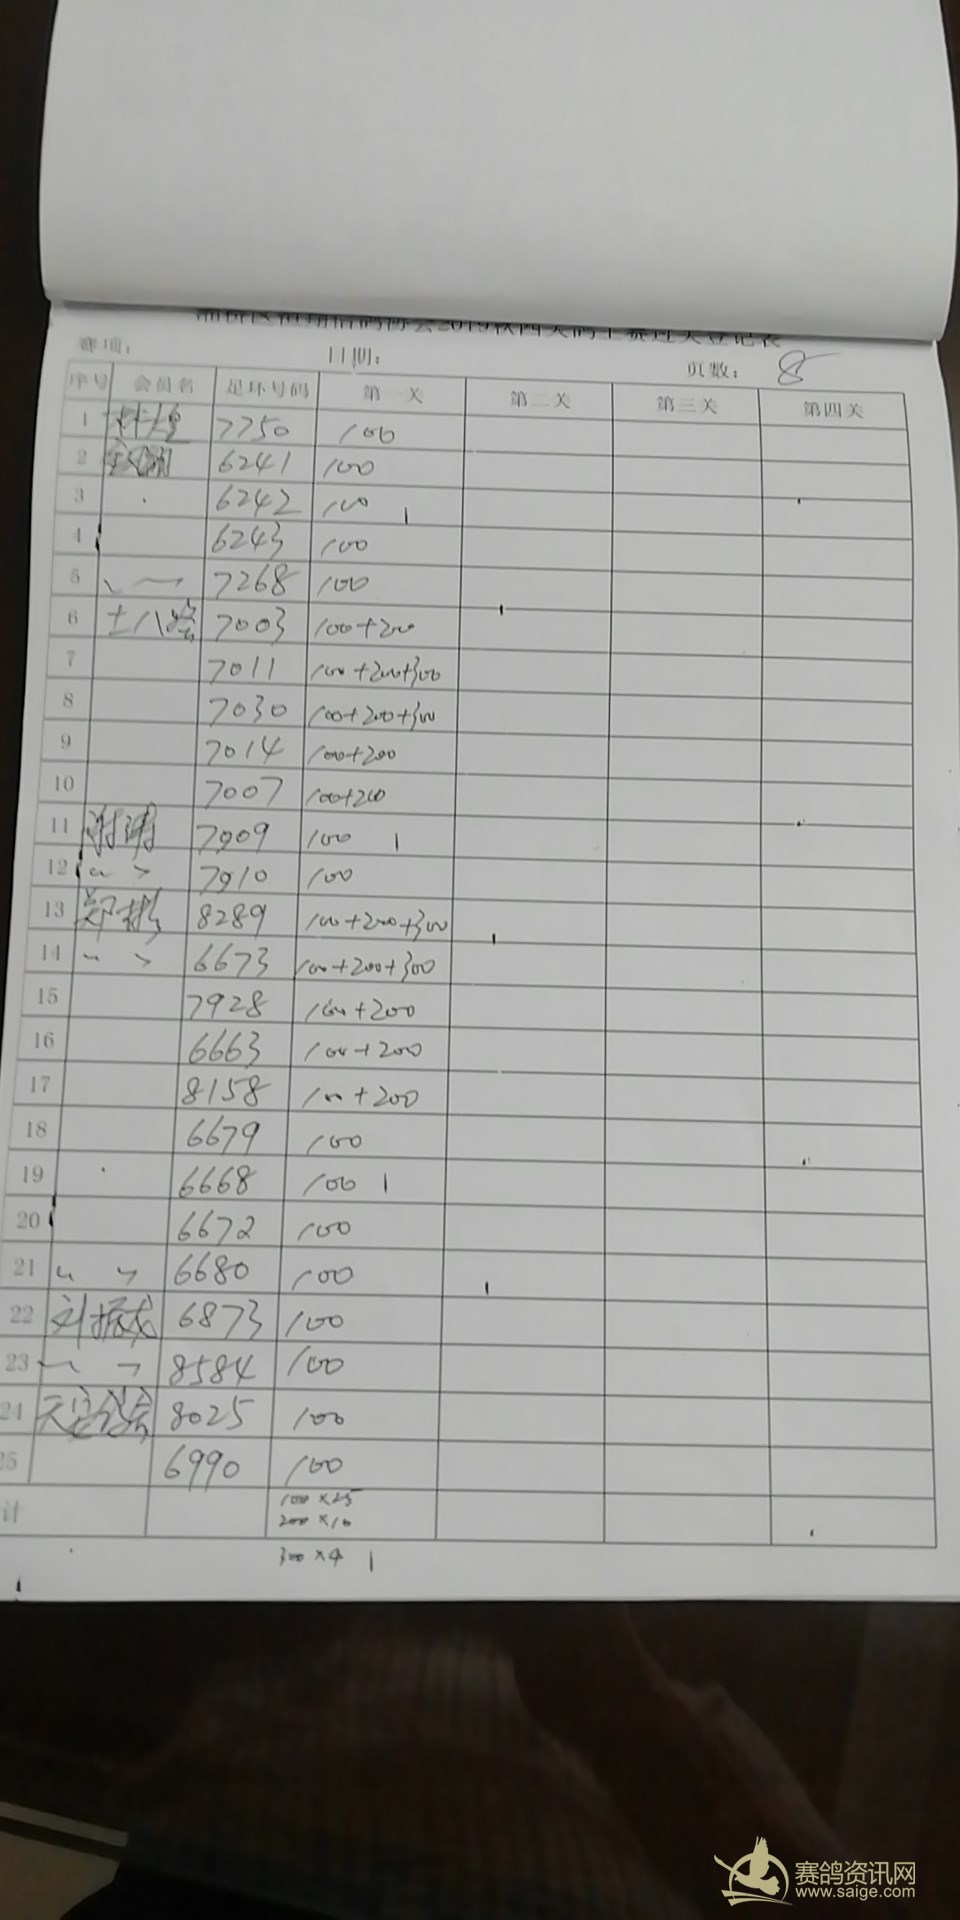 赛项： 日期： 页数： 8
序号 会员名 足环号码 第一关 第二关 第三关 第四关
1 7750 100
2 6241 100
3 6242 100
4 6243 100
5 7268 100
6 土八路 7003 100+200
7 7011 100+200+300
8 7030 100+200+300
9 7014 100+200
10 7007 100+200
11 7909 100
12 〃 7910 100
13 郑彬 8289 100+200+300
14 〃 6673 100+200+300
15 7928 100+200
16 6663 100+200
17 8158 100+200
18 6679 100
19 6668 100
20 6672 100
21 〃 6680 100
22 刘振龙 6873 100
23 〃 8584 100
24 8025 100
25 6990 100
计 100×25
200×10
300×4
赛鸽资讯网
www.saige.com